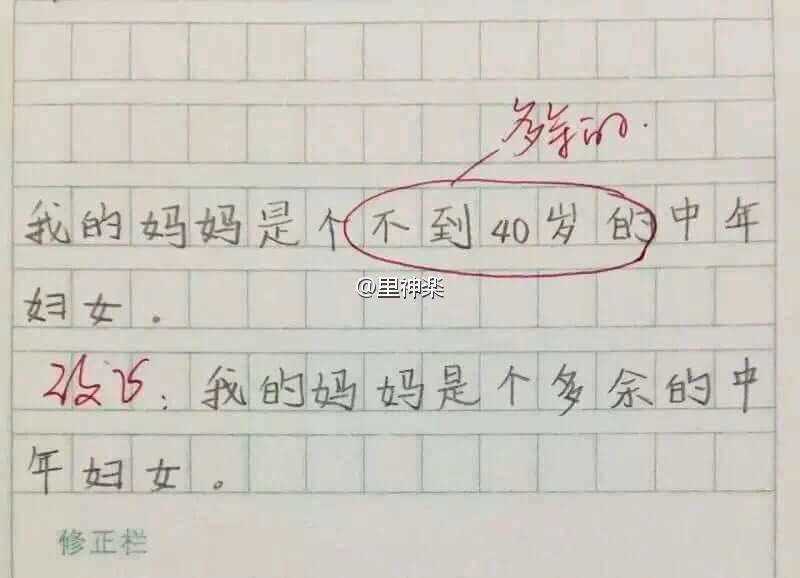 多余的.
我的妈妈是个不到40岁的中年
妇女.
@里神楽
改正:我的妈妈是个多余的中
年妇女。
修正栏